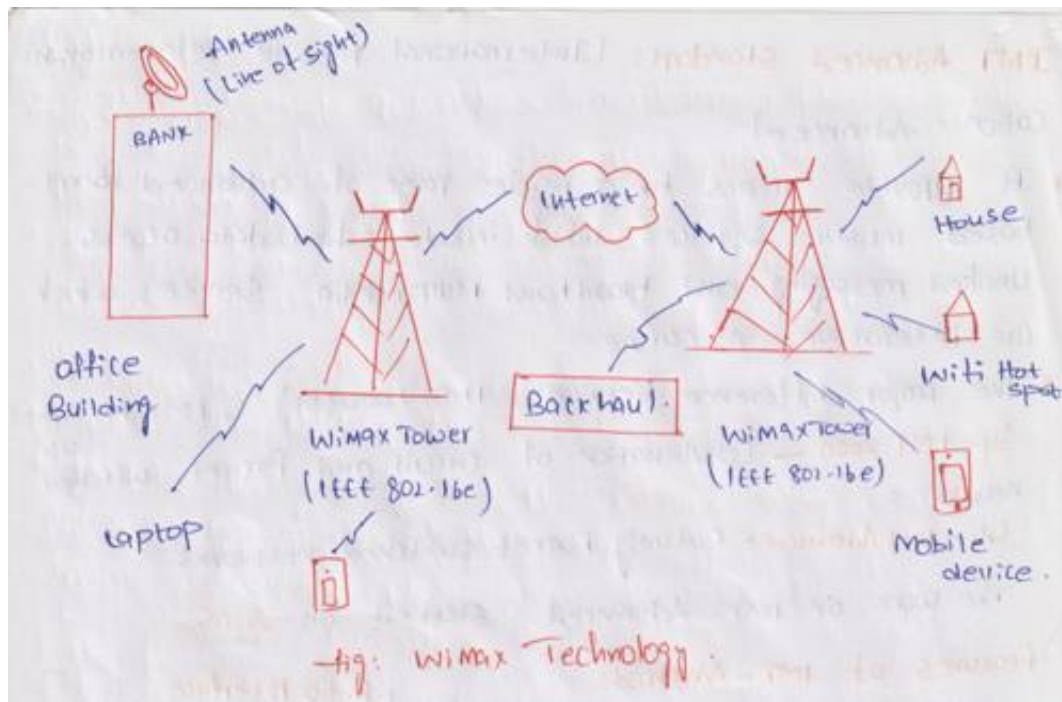 Antenna
(Line of sight)
BANK
Internet
House
office
Building
Backhaul.
Wifi Hot
spot
WiMax Tower
(IEEE 802.16e)
WiMax Tower
(IEEE 802.16e)
Laptop
Mobile
device.
fig: WiMax Technology.